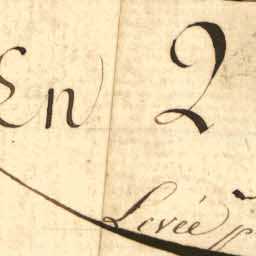 En 2
Levée p